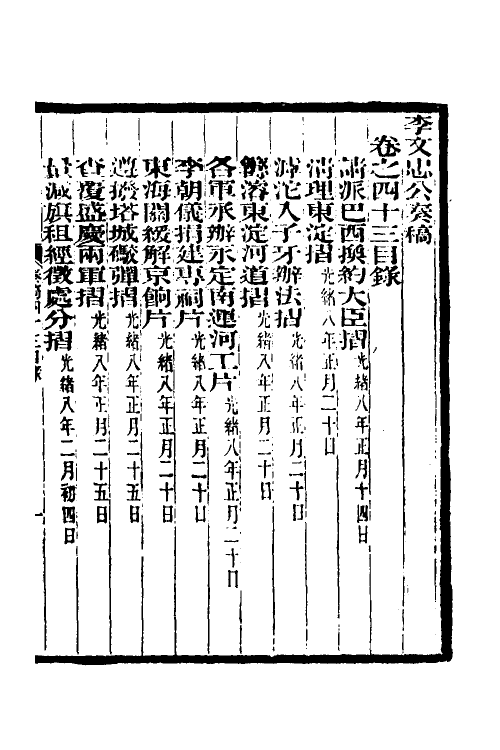 李文忠公奏稿
卷之四十三目錄
請派巴西換約大臣摺 光緒八年正月十四日
清理東淀摺 光緒八年正月二十日
滹沱入子牙辦法摺 光緒八年正月二十日
東淀河道摺 光緒八年正月二十日
各軍承辦永定南運河工片 光緒八年正月二十日
李朝儀捐建專祠片 光緒八年正月二十日
東海關緩解京餉片 光緒八年正月二十日
撥塔城礮彈摺 光緒八年正月二十五日
查覆盛慶兩軍摺 光緒八年正月二十五日
量減旗租經徵處分摺 光緒八年二月初四日